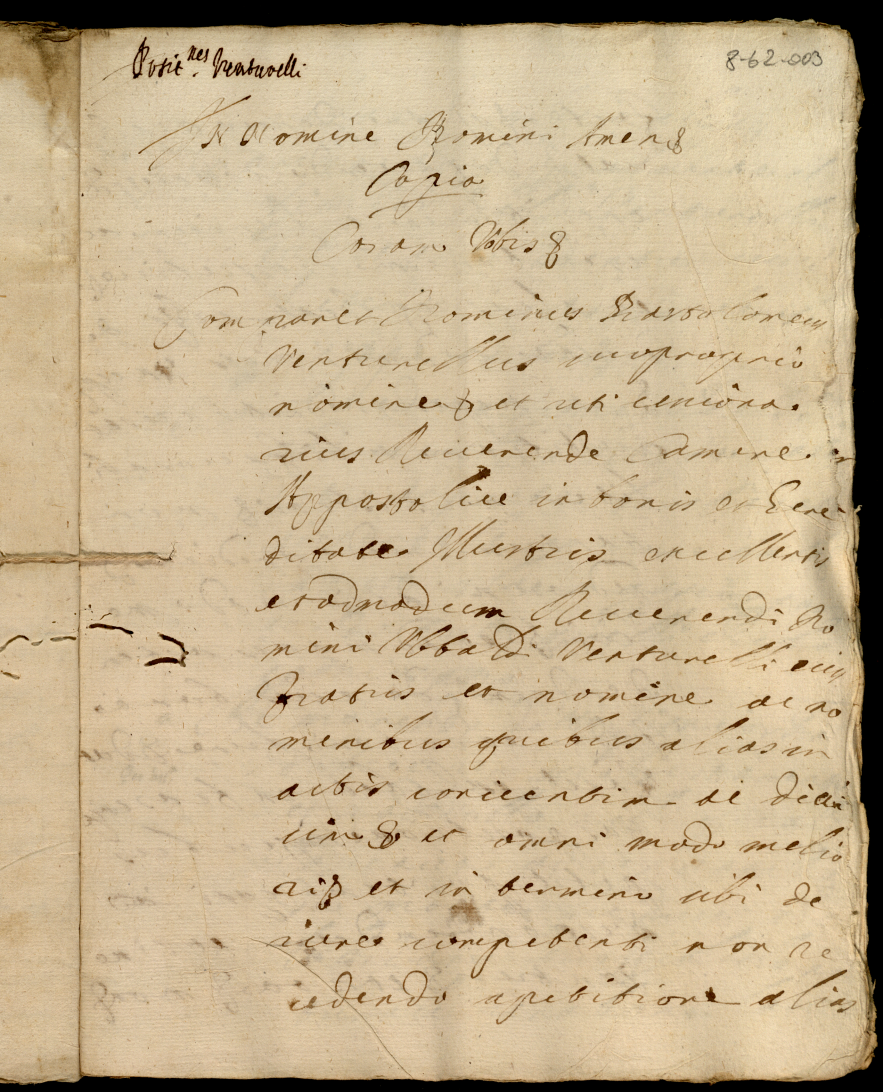 Posit.nes Venturelli
8-62-003
In Nomine Domini Amen
Copia
Coram Vobis
Comparet Dominus Bartolomeus
Venturellus suo proprio
nomine et uti cessiona
rius Reverende Camere
Appostolice in bonis et Here
ditate Illustris excellentis
et admodum Reverendi Do
mini Ubbaldi Venturelli eius
fratris et nomine ac no
minibus quibus alias in
actis conventim ac divi
sim et omni modo melio
ri et in termino sibi de
iure competenti non re
cedendo a petitione alias